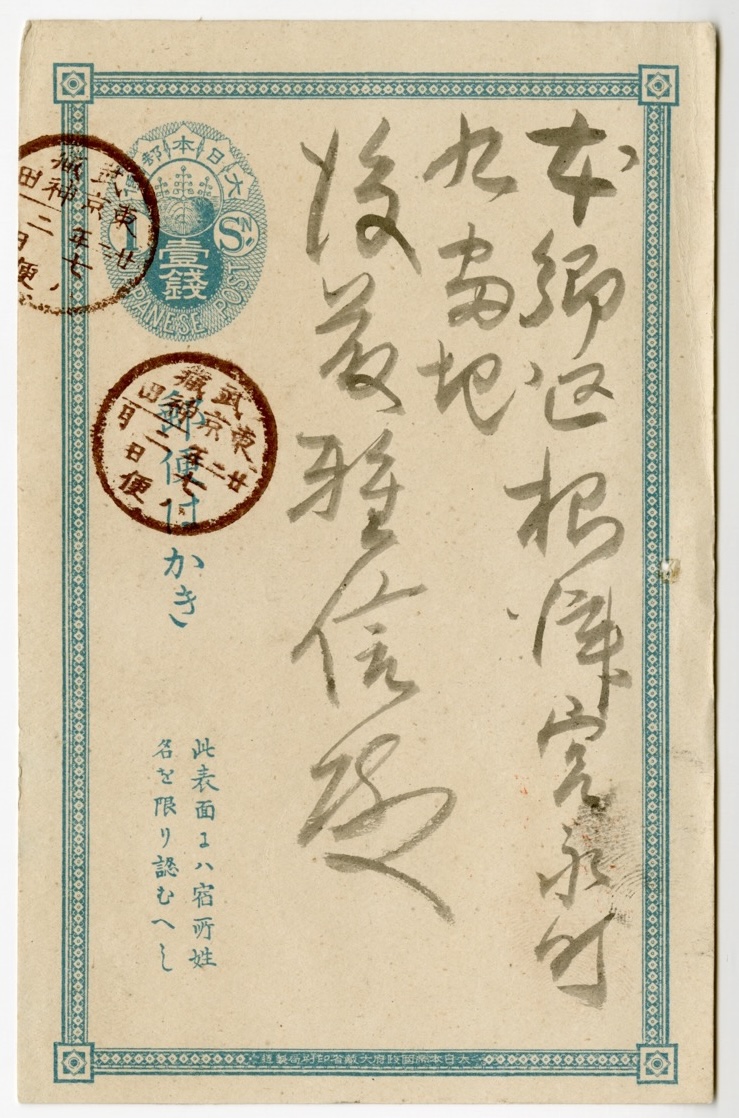 本郷区根津宮永町
九番地
後藤雅信殿
大日本郵便
1 SN
壹錢
JAPANESE POST
郵便はかき
武蔵
東京神田
廿二年七
武蔵
東京神田
廿二年七
此表面ニハ宿所姓
名を限り認むへし
大日本帝国政府大蔵省印刷局製造